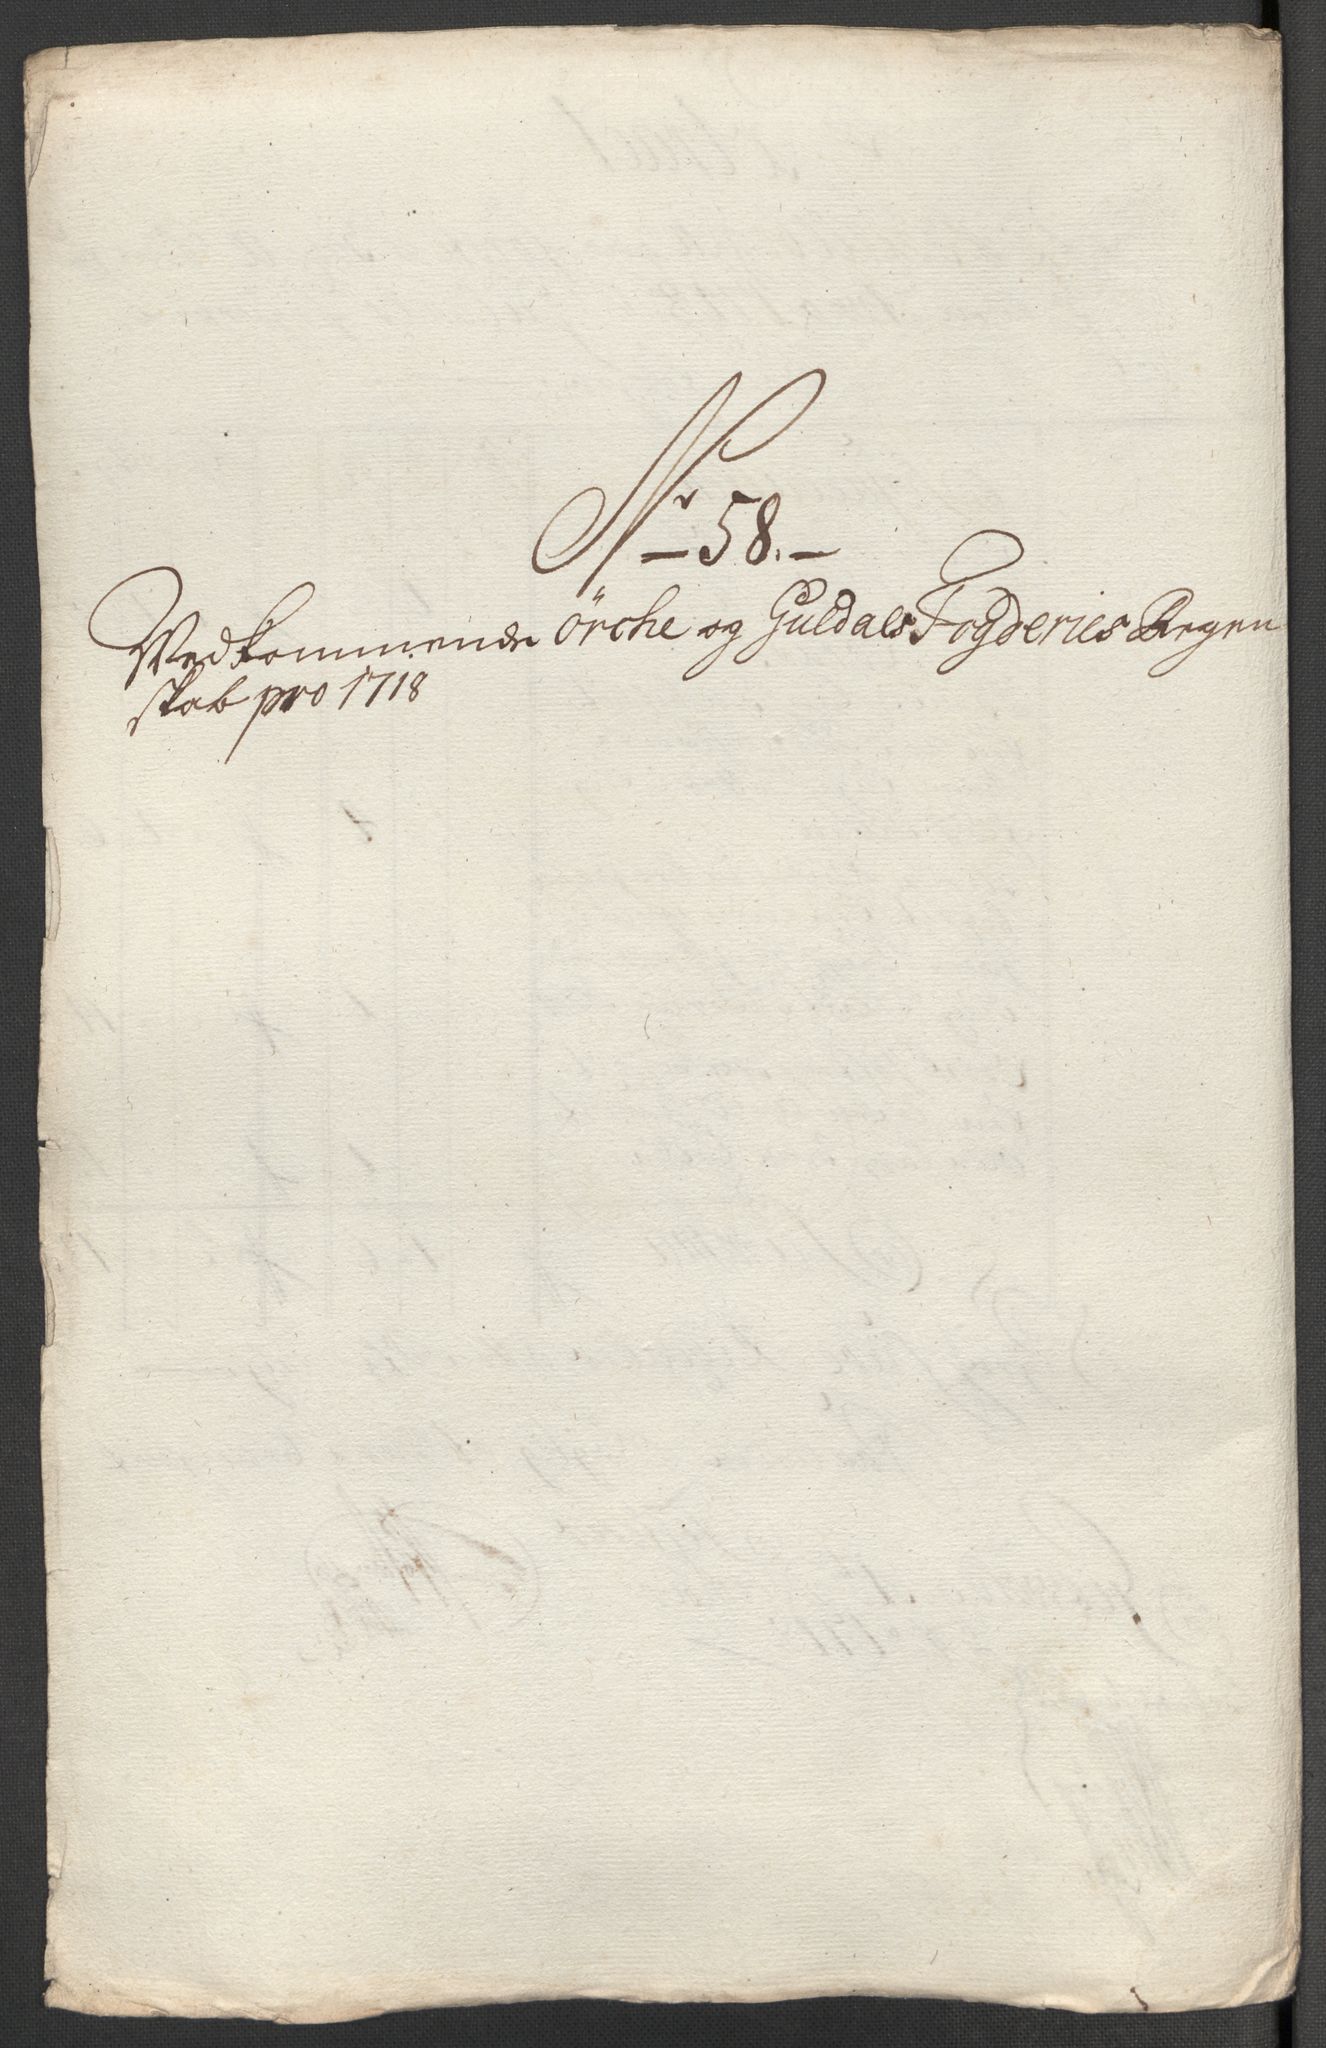 Nr 58.
Vedkommende Örche og Guldals Fogderies Regen
skab pro 1718